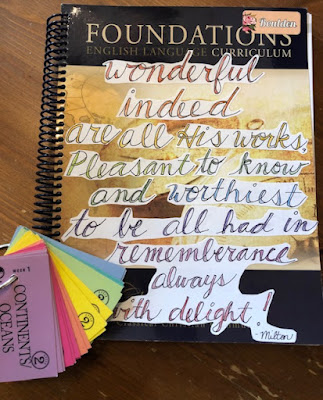 Bentden
FOUNDATIONS
ENGLISH LANGUAGE CURRICULUM
wonderful
indeed
are all His works,
Pleasant to know
and worthiest
to be all had in
rememberance
always
with delight!
-Milton
Classical
WEEK 1
CONTINENTS
OCEANS
2